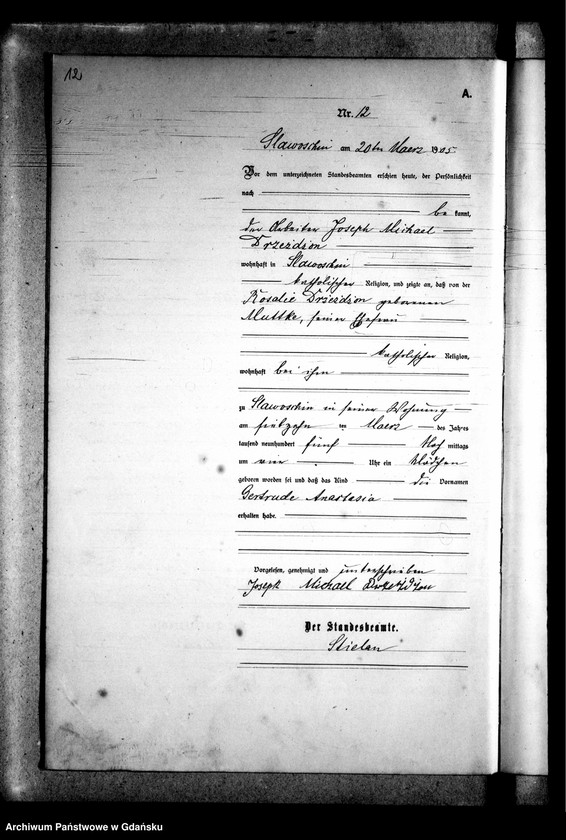 12
A.
Nr. 12
Slawoschin am 20ten Maerz 1905
Vor dem unterzeichneten Standesbeamten erschien heute, der Persönlichkeit
nach
be kannt,
der Arbeiter Joseph Michael
Drzezdzon
wohnhaft in Slawoschin
katholischer Religion, und zeigte an, daß von der
Rosalie Drzezdzon geborenen
Muttke, seiner Ehefrau
katholischer Religion,
wohnhaft bei ihm
zu Slawoschin in seiner Wohnung
am siebzehn ten Maerz des Jahres
tausend neunhundert fünf Nach mittags
um vier Uhr ein Mädchen
geboren worden sei und daß das Kind die Vornamen
Gertrude Anastasia
erhalten habe.
Vorgelesen, genehmigt und unterschrieben
Joseph Michael Drzezdzon
Der Standesbeamte.
Archiwum Państwowe w Gdańsku